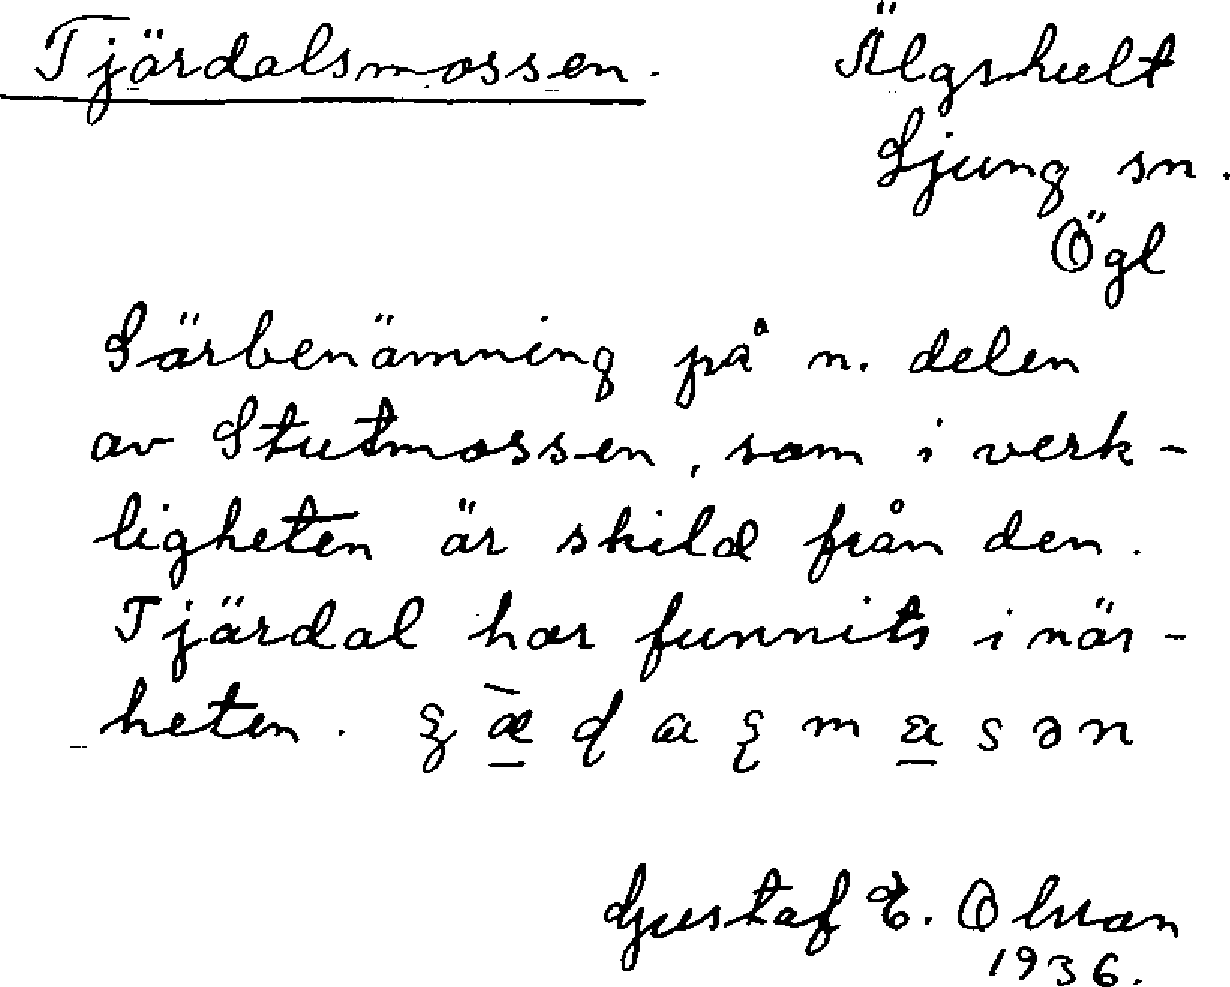 Tjärdalsmossen. Älgshult
Ljung sn.
Ögl
Särbenämning på n. delen
av Stutmossen, som i verk-
ligheten är skild från den.
Tjärdal har funnits i när-
heten.
Gustaf E. Olsson
1936.